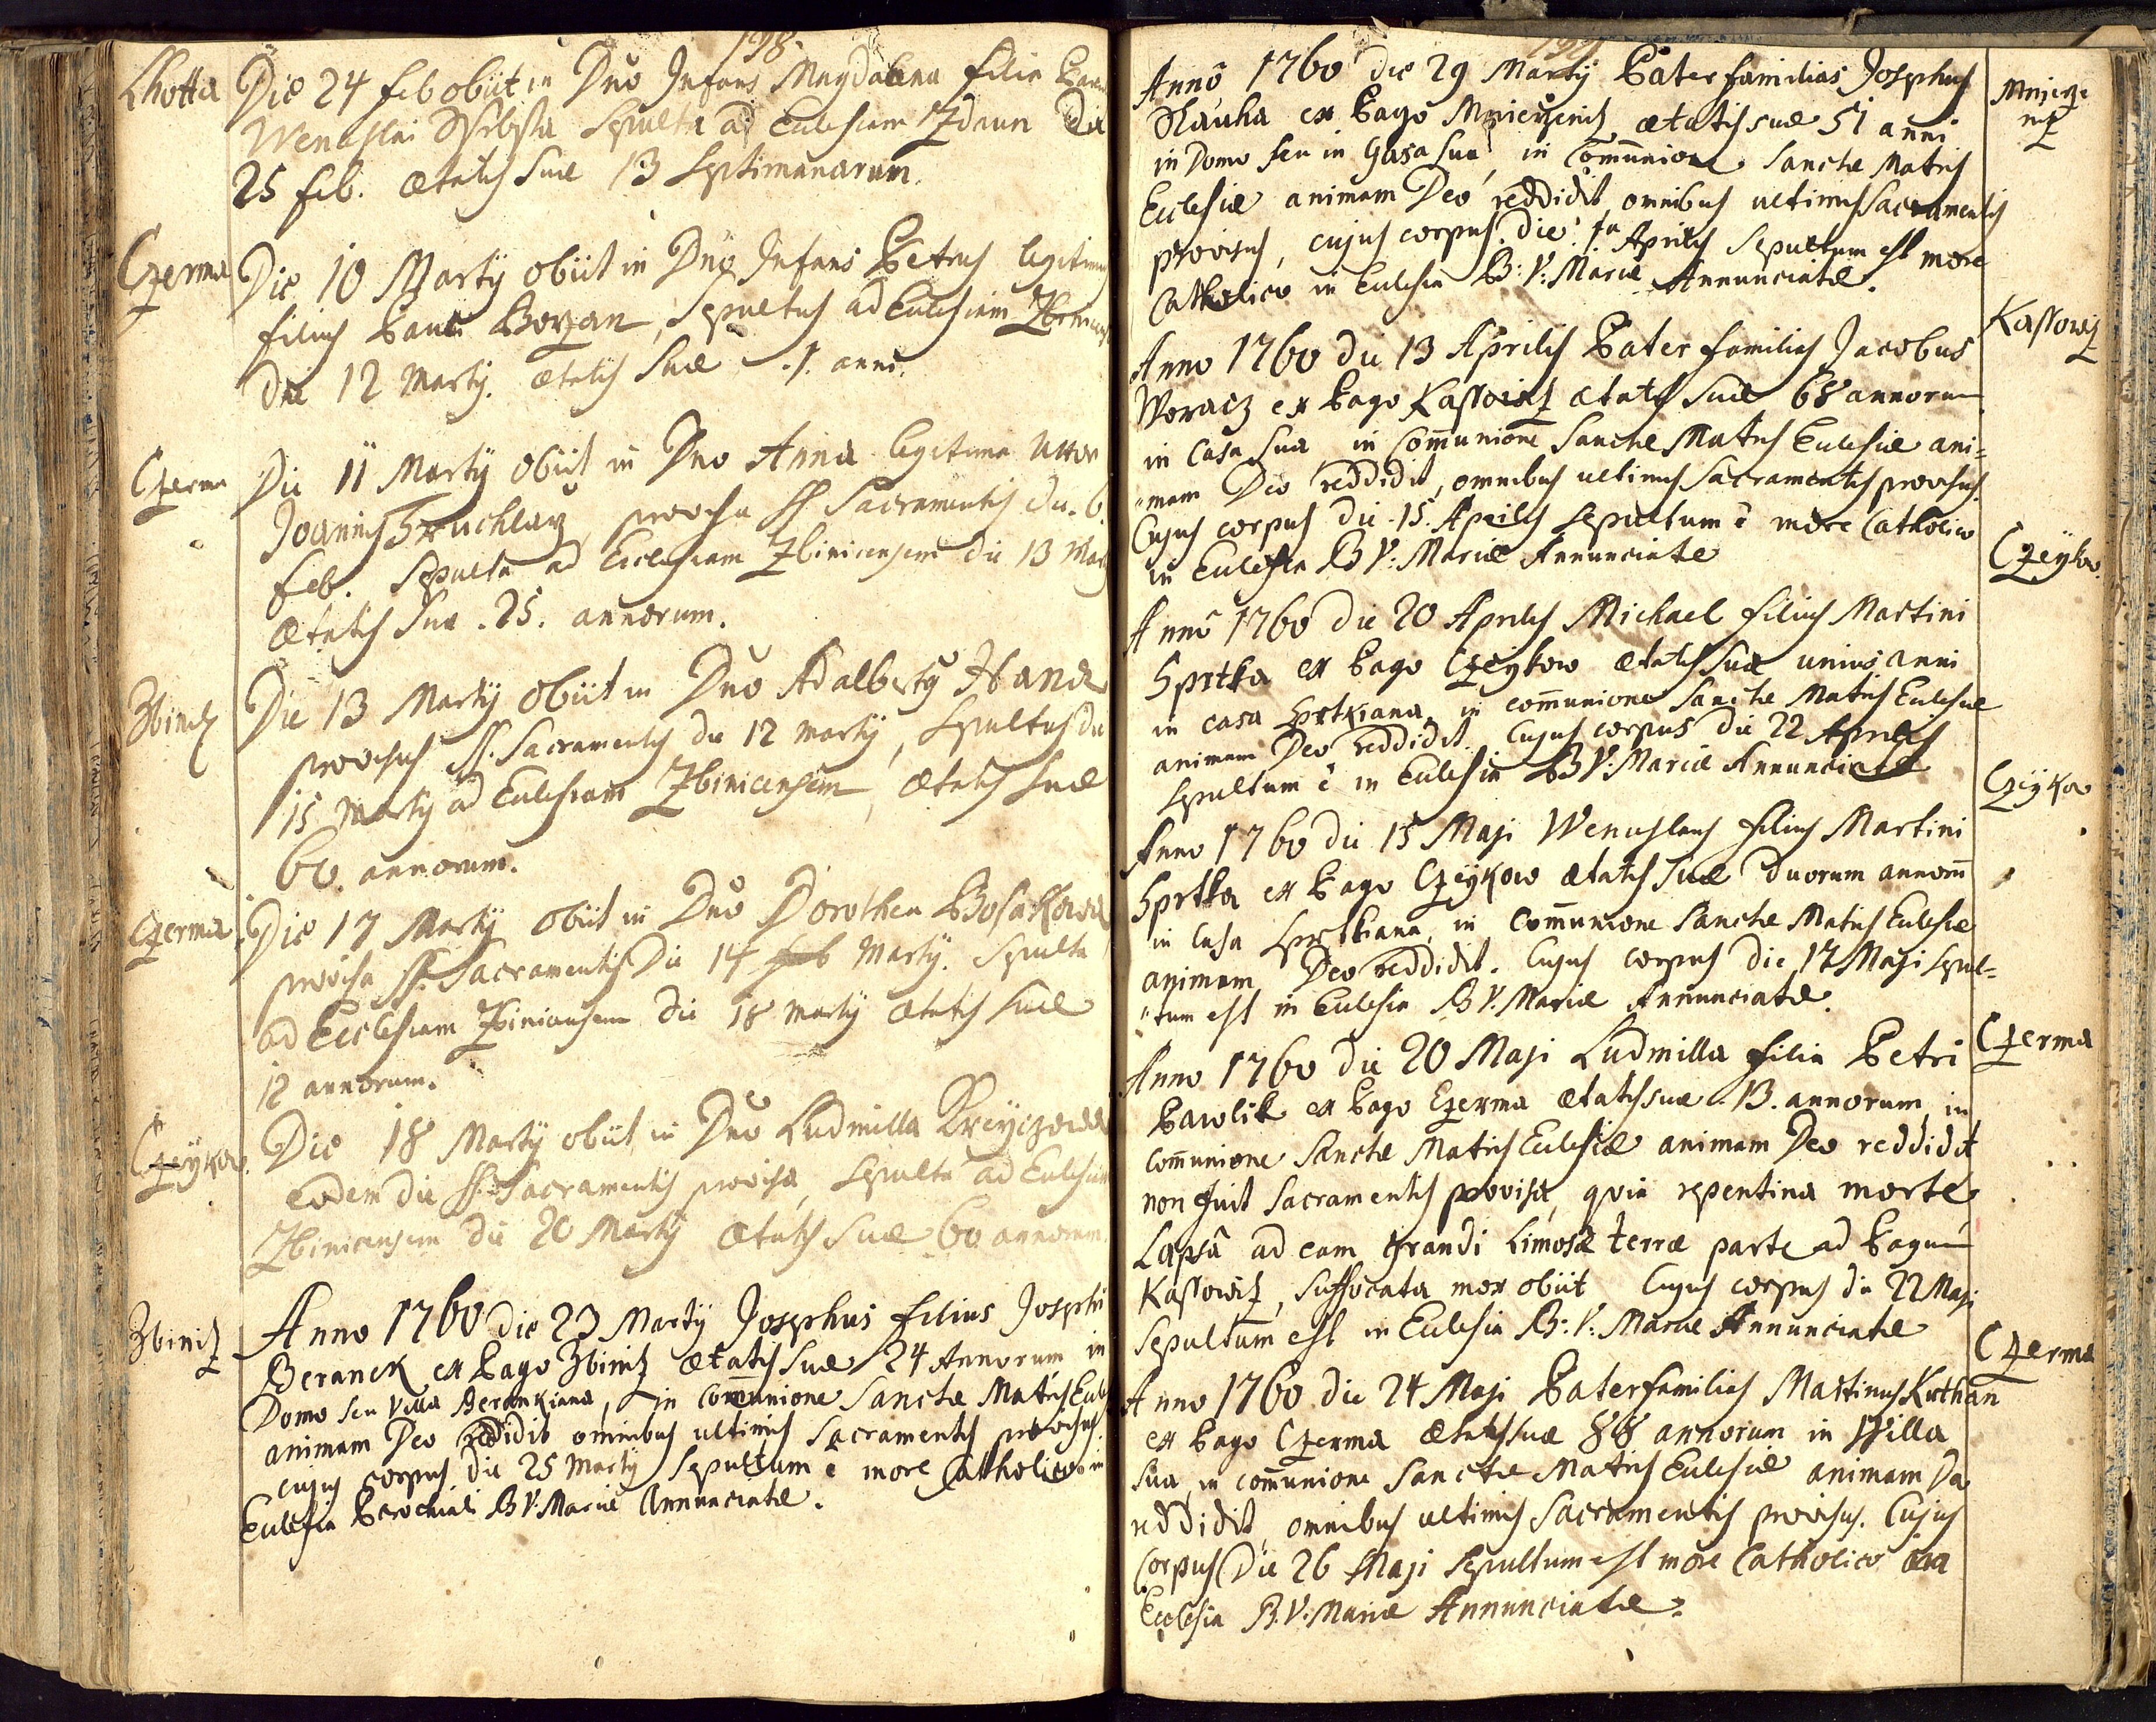 198.
Lhotta
Die 24 feb obiit in Dno Infans Magdalena filia
Wenceslai sepulta ad Ecclesiam Zdaun Die
25 feb. ætatis suæ 13 septimanarum.
Czerma
Die 10 Martij obiit in Dno Infans Petrus legitimus
filius Pauli Bozan, sepultus ad Ecclesiam
die 12 Martij. ætatis suæ .1. anni.
Czerma
Die 11 Martij obiit in Dno Anna legitima uxor
Joannis provisa SS Sacramentis die. 6.
feb. sepulta ad Ecclesiam Zbinicensem die 13 Martij
ætatis suæ .25. annorum.
Zbinicz
Die 13 Martij obiit in Dno Adalbertg Hana
provisus SS. Sacramentis die 12 martij, sepultus die
15 Martij ad Ecclesiam Zbinicensem, ætatis suæ
60. annorum.
Czerma
Die 17 Martij obiit in Dno Dorothea Bosakowa
provisa SS. Sacramentis Die 14 feb Martij. sepulta
ad Ecclesiam Zbinicensem die 18 martij ætatis suæ
12 annorum.
Czeykow.
Die 18 Martij obiit in Dno Ludmilla Kreyczowa
eodem die SS. Sacramentis provisa, sepulta ad Ecclesiam
Zbinicensem die 20 Martij ætatis suæ 60 annorum.
Zbinicz
Anno 1760 die 23 Martij Josephus filius Josephi
Beranek ex Pago Zbinicz ætatis suæ 24 Annorum in
Domo seu Villa Berankiana, in Com̄unione Sanctæ Matris Eccle
animam Deo reddidit omnibus ultimis Sacramentis provisus.
cujus corpus die 25 Martij sepultum ē more Catholico in
Ecclesia Parochiali B V. Mariæ Annunciatæ.
199
Anno 1760 die 29 Martij Pater familias Josephus
Slauka ex Pago Mnierzenicz ætatis suæ 51 anni
in Domo seu in Casa sua, in Com̄unione Sanctæ Matris
Ecclesiæ animam Deo reddidit omnibus ultimis Sacramentis
provisus, cujus corpus die .1a Aprilis Sepultum est more
Catholico in Ecclesia B: V: Mariæ Annunciatæ.
Mnierze
nicz
Anno 1760 die 13 Aprilis Pater familias Jacobus
Woracz ex Pago Kassowicz ætatis suæ 68 annorum
in Casa sua in Com̄unione Sanctæ Matris Ecclesiæ ani=
"mam Deo reddidit, omnibus ultimis Sacramentis provisus.
Cujus corpus die .15. Aprilis sepultum ē more Catholico
in Ecclesia B V: Mariæ Annunciatæ
Kassowicz
Anno 1760 die 20 Aprilis Michael filius Martini
Sprtka ex Pago Czeykow ætatis suæ unius anni
in casa Sprtkiana in com̄unione Sanctæ Matris Ecclesiæ
animam Deo reddidit. Cujus corpus die 22 Aprilis
sepultum ē in Ecclesia B V: Mariæ Annunciatæ
Czeykow.
Anno 1760 die 15 Maji Wenceslaus filius Martini
Sprtka ex Pago Czeykow ætatis suæ duorum annorū
in Casa Sprtkiana in Com̄unione Sanctæ Matris Ecclesiæ
animam Deo reddidit. Cujus corpus die 17 Maji sepul=
"tum est in Ecclesia B V. Mariæ Annunciatæ.
Czeykow
Anno 1760 die 20 Maji Ludmilla filia Petri
Pawlik ex Pago Czerma ætatis suæ 13. annorum, in
com̄unione Sanctæ Matris Ecclesiæ animam Deo reddidit
non fuit Sacramentis provisa, quia repentina morte
Lapsâ ad eam grandi Limosæ terræ parte ad Pagum
Kassowicz, suffocata mox obiit Cujus corpus die 22 Maji
sepultum est in Ecclesia B: V: Mariæ Annunciatæ
Czerma
Anno 1760 die 24 Maji Paterfamilias Martinus Kuthan
ex Pago Czerma ætatis suæ 88 annorum in Villa
sua in com̄unione Sanctæ Matris Ecclesiæ animam Deo
reddidit, omnibus ultimis Sacramentis provisus. Cujus
Corpus Die 26 Maji sepultum est more Catholico
Ecclesia B. V: Mariæ Annunciatæ.
Czerma